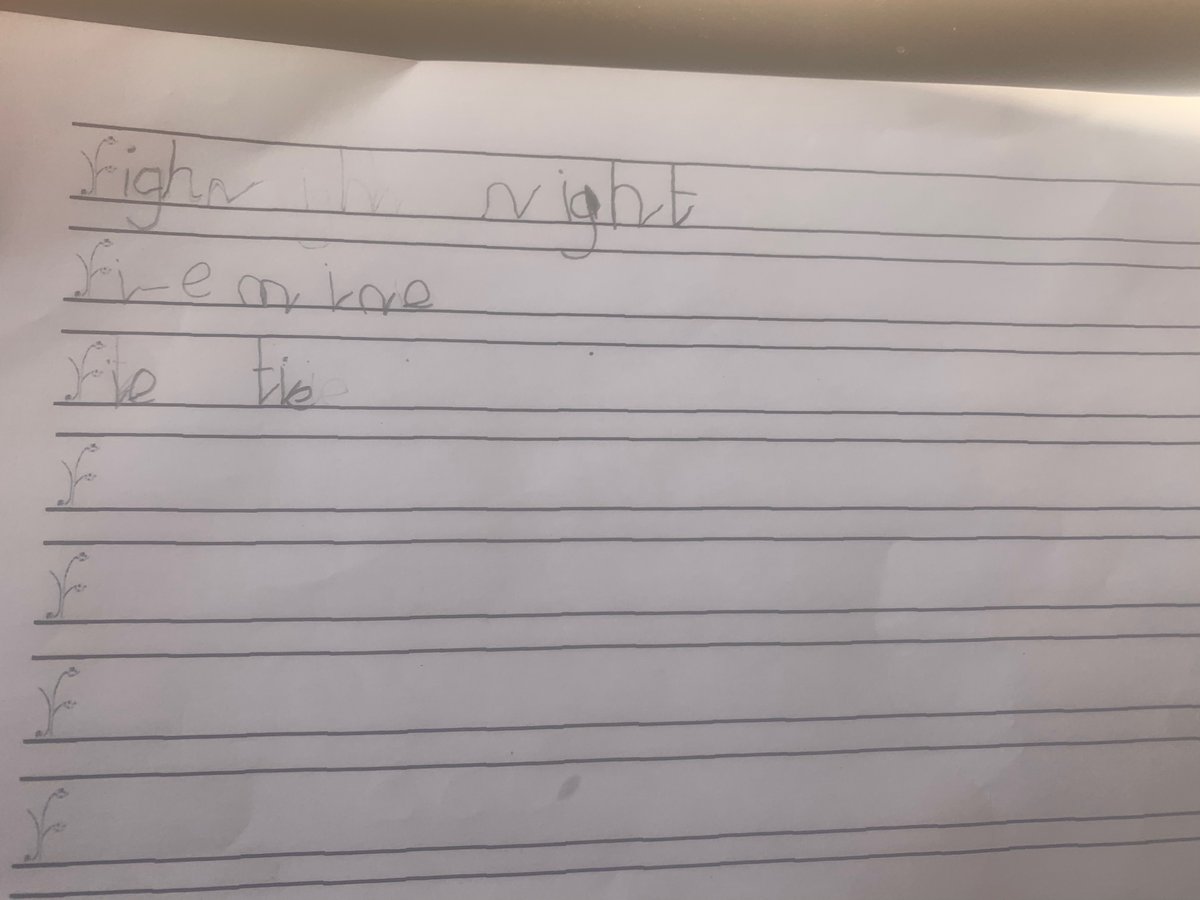 Fighn night
Fi-e mine
Fie tie
F
F
F
F